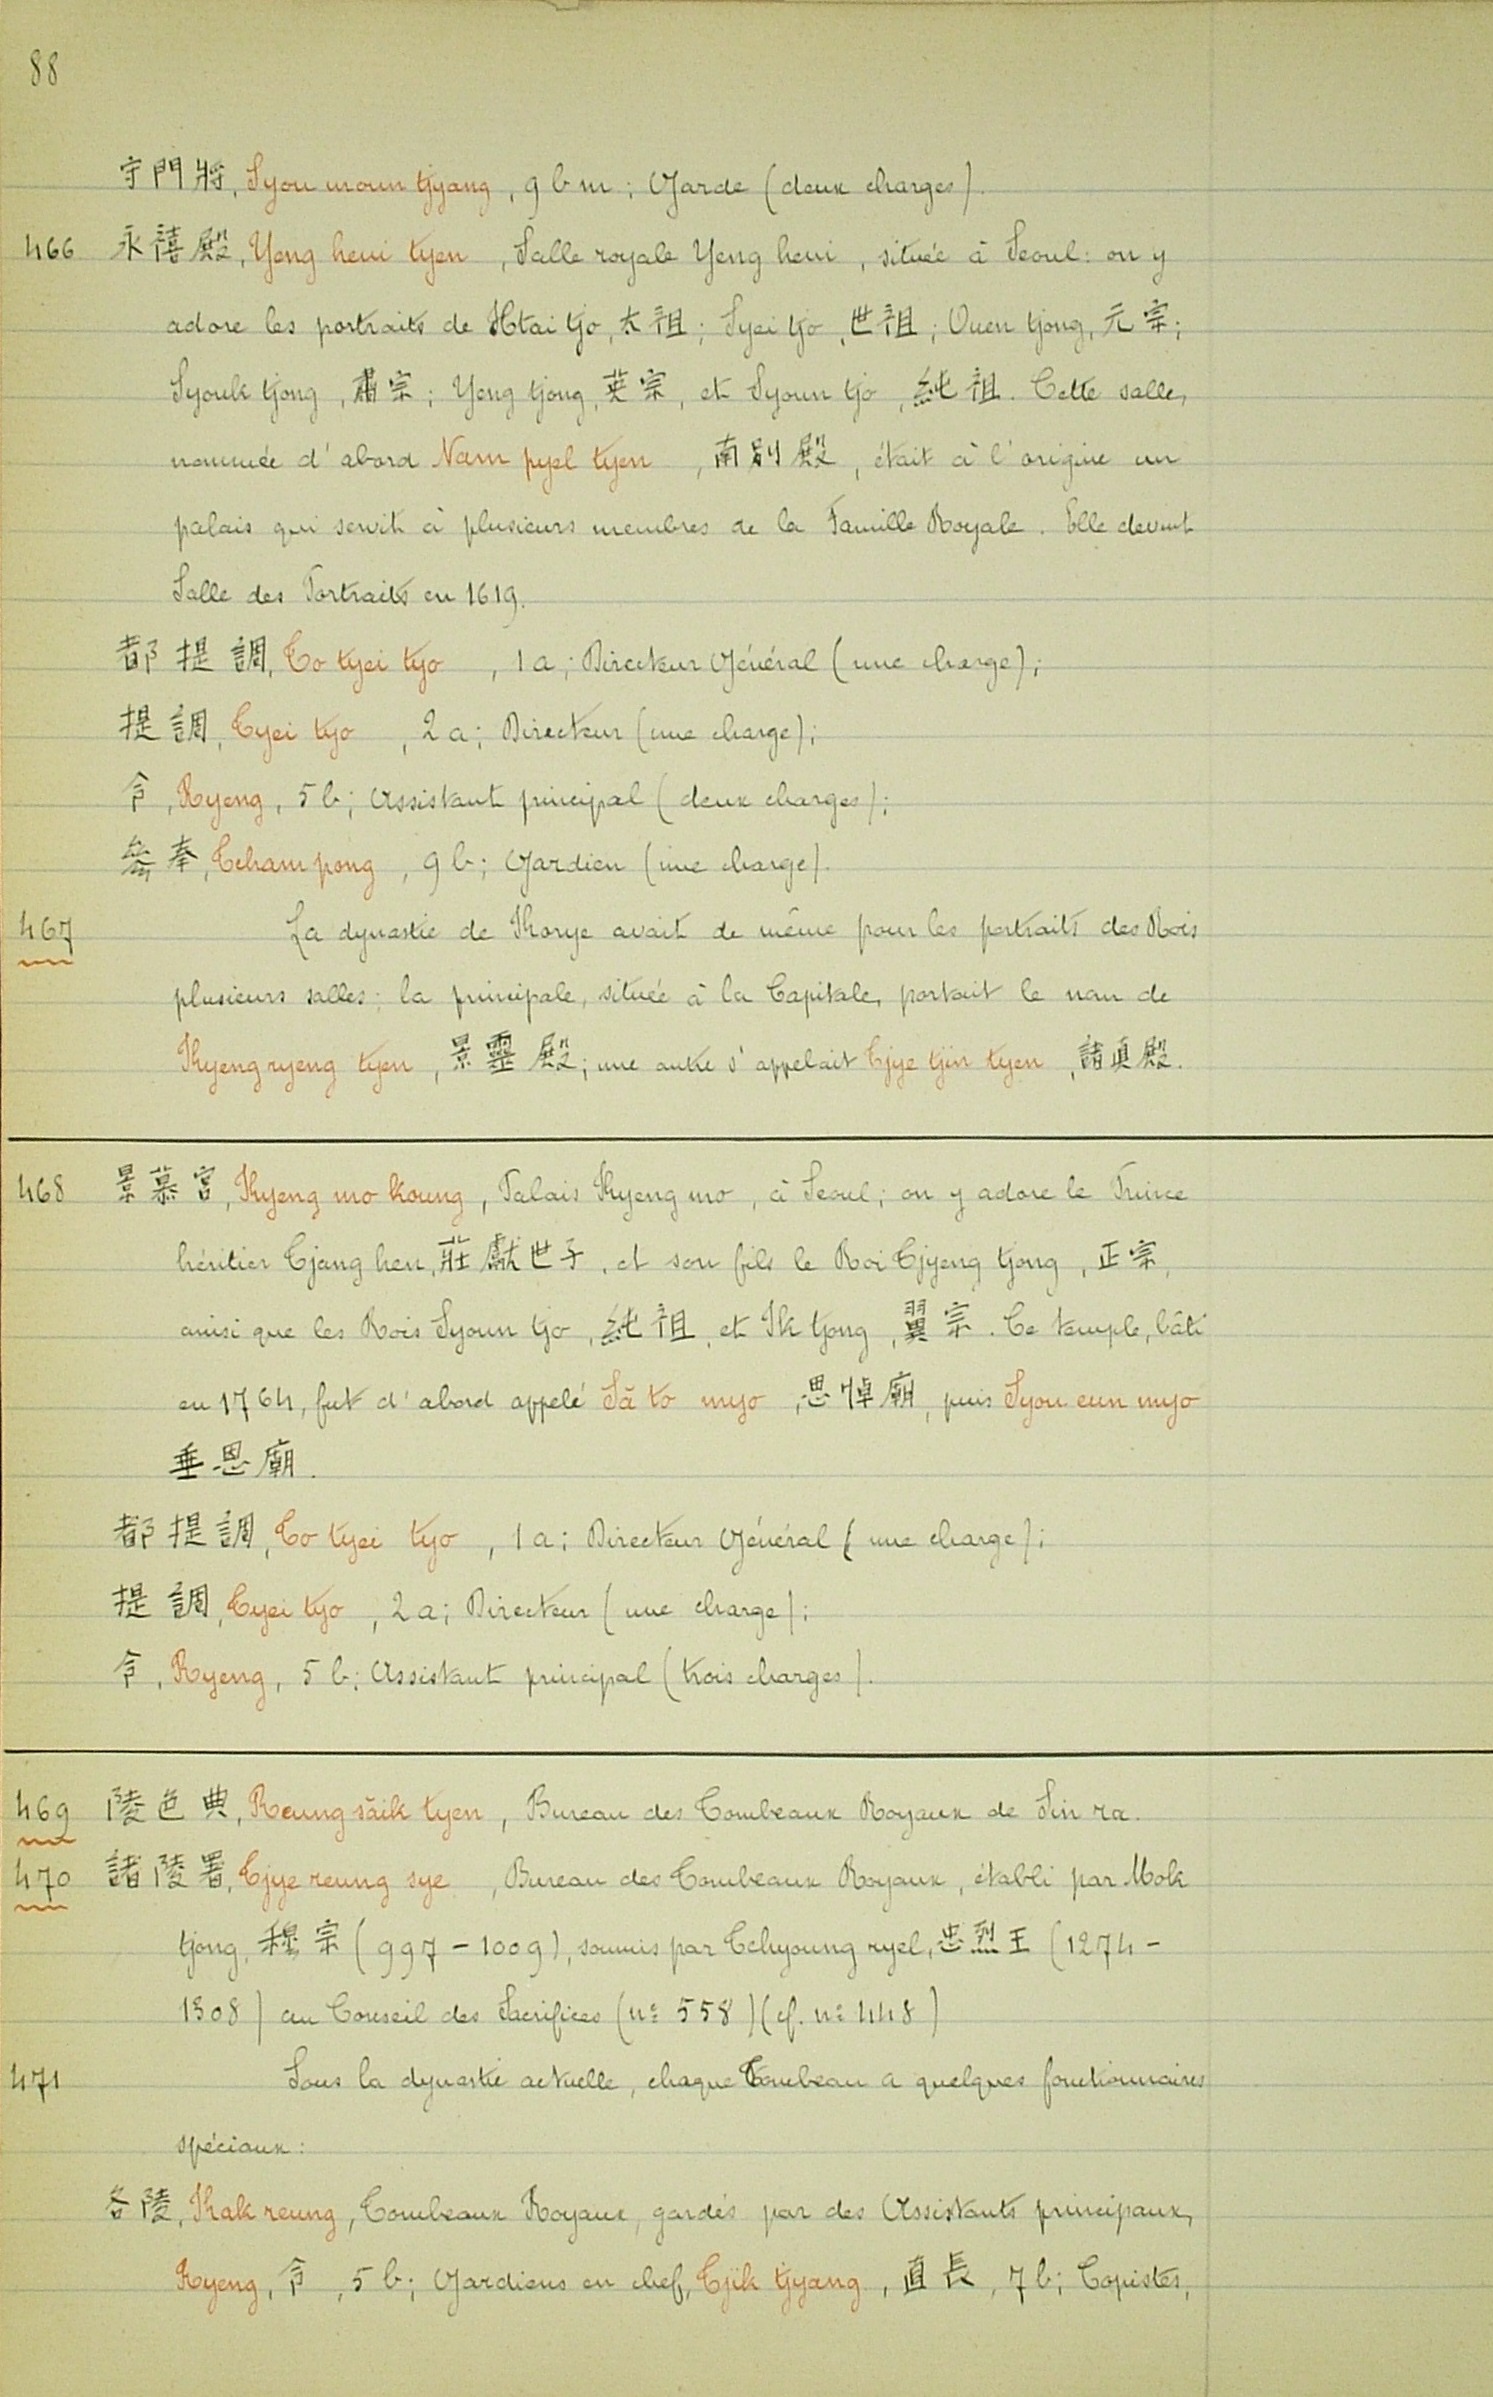 88
守門將, Syou moun tjyang, 9 b m; Garde (deux charges).
466 永禧殿, Yeng heui tyen, Salle royale Yeng heui, située à Seoul: on y
adore les portraits de Htai tjo,太祖; Syei tjo, 世祖; Ouen tjong, 元宗;
Syouk tjong, 肅宗; Yeng tjong, 英宗, et Syoun tjo, 純祖. Cette salle,
nommée d'abord Nam pyel tyen, 南別殿, était à l'origine un
palais qui servit à plusieurs membres de la Famille Royale. Elle devint
Salle des Portraits en 1619.
都提調, To tyei tyo, 1 a; Directeur Général (une charge);
提調, Tyei tyo, 2 a; Directeur (une charge);
令, Ryeng, 5 b; Assistant principal (deux charges);
參奉, Tcham pong, 9 b; Gardien (une charge).
467 La dynastie de Korye avait de même pour les portraits des Rois
plusieurs salles; la principale, située à la Capitale, portait le nom de
Kyeng ryeng tyen, 景靈殿; une autre s'appelait Tjye tjin tyen, 諸眞殿.
468 景慕宮, Kyeng mo koung, Palais Kyeng mo, à Seoul; on y adore le Prince
héritier Tjang hen, 莊獻世子, et son fils le Roi Tjyeng tjong, 正宗,
ainsi que les Rois Syoun tjo, 純祖, et Ik tjong, 翼宗. Ce temple, bâti
en 1764, fut d'abord appelé Să to myo, 思悼廟, puis Syou eun myo
垂恩廟.
都提調, To tyei tyo, 1 a; Directeur Général (une charge);
提調, Tyei tyo, 2 a; Directeur (une charge);
令, Ryeng, 5 b; Assistant principal (trois charges).
469 陵色典, Reung săik tyen, Bureau des Tombeaux Royaux de Sin ra.
470 諸陵署, Tjye reung sye, Bureau des Tombeaux Royaux, établi par Mok
tjong, 穆宗 (997-1009), soumis par Tchyoung ryel, 忠烈王 (1274-
1308) au Conseil des Sacrifices (nº 558) (cf. nº 448)
471 Sous la dynastie actuelle, chaque Tombeau a quelques fonctionnaires
spéciaux:
各陵, Kak reung, Tombeaux Royaux, gardés par des Assistants principaux,
Ryeng, 令, 5 b; Gardiens en chef, Tjik tjyang, 直長, 7 b; Copistes,